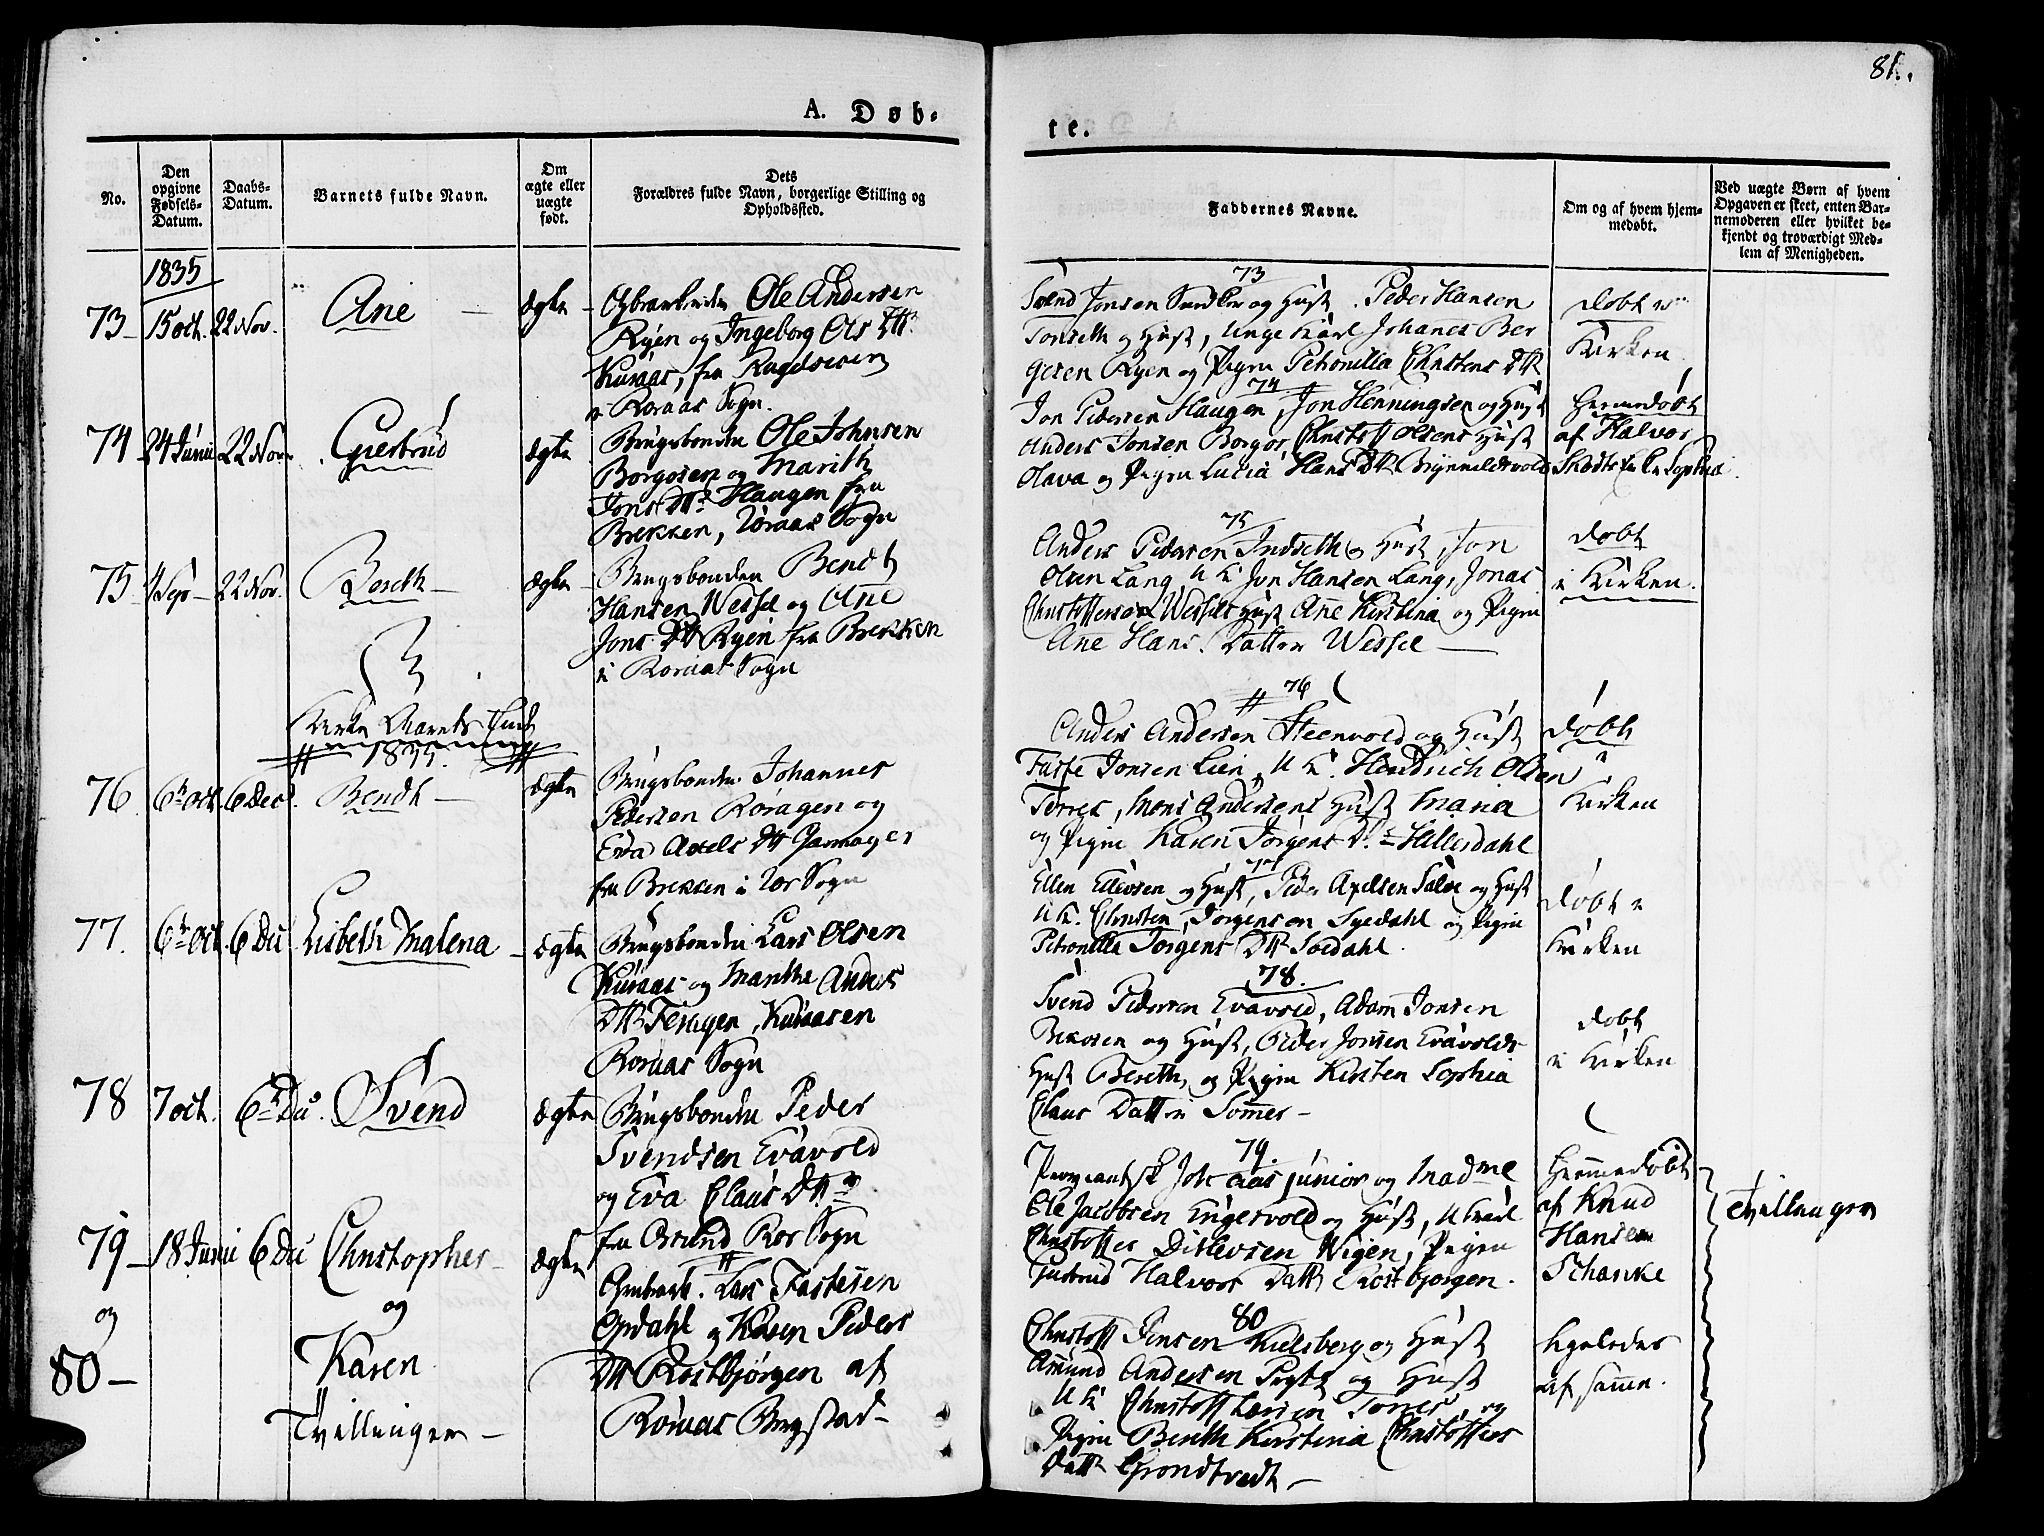 81.
A. Døb-
te.
No.
Den opgivne Fødsels-Datum.
Daabs-Datum.
Barnets fulde Navn.
Om ægte eller uægte født.
Dets Forældres fulde Navn, borgerlige Stilling og Opholdssted.
Faddernes Navne.
Om og af hvem hjem-medøbt.
Ved uægte Børn af hvem Opgaven er skeet, enten Bar-nemoderen eller hvilket be-kjendt og troværdigt Med-lem af Menigheden.
1835
73 – 15 oct. 22 Nov. Ane – ægte –
Ole Andersen
Ryen og Ingeborg Ols Dtr.
Kuraas, fra
i Røraas Sogn.
73
Svend Jonsen og Hust. Peder Hansen
Tonseth og Hust, Unge Karl Johanes Ber
gesen Ryen og Pigen Petronilla Christens Dtr
døbt i
Kirken
74 24 Junii 22 Nov. Giertrud ægte
Brugsbonden Ole Johnsen
Borgosen og Marith
Jons Dtr Haugen fra
Brekken, Røraas Sogn
74
Jon Pedersen Haugen, Jon Henningsen og Hust
Anders Jonsen Borgos, Christoff Olsens Hust
Olava og Pigen Lucia Hans Dtr Brynnildsvold
hiemmedøbt
af Halvor
75 Sep – 22 Nov. Bendt – ægte –
Brugsbonden Bendt
Hansen Wessel og Ane
Jons Dtr Ryen fra Brekken
i Røraas Sogn
75
Anders Pedersen Indseth og Hust, Jon
Olsen Lang, U K Jon Hansen Lang, Jonas
Christoffersen Wessels Hust Ane Kirstina og Pigen
Ane Hans Datter Wessel –
døbt
i Kirken.
Kirke Aarets
1835.
76 6 oct. 6 Dec. Bendt – ægte
Brugsbonden Johannes
Pedersen Røragen og
Eva Axels Dtr Jamager
fra Brekken i Rør Sogn
76
Anders Andersen Steenvold og Hust
Faste Jonsen Lien, U K. Hendrich Olsen
Torres, Mons Andersens Hust Maria
og Pigen Karen Jørgens Dr. Hillerdahl
døbt
i
Kirken
77. 6 oct. 6 Dec Lisbeth Malena – ægte
Brugsbonden Lars Olsen
Kuraas og Marithe Anders
Dtr Feragen, Kuraasen
Røraas Sogn
77
Ellen Ellevsen og Hust, Peder Axelsen og Hust
U K. Christen Jørgensen og Pigen
Petronilla Jørgens Dtr Soedahl.
døbt i
Kirken
78 7 oct. 6 Dec. Svend ægte
Brugsbonden Peder
Svendsen Evavold
og Eva Claus Dtr
fra Brekken Rør Sogn
78.
Svend Pedersen Evavold, Adam Jonsen
Bekosen og Hust, Peder Jonsen Evavolds
Hust Bereth, og Pigen Kirsten Sophia
Claus Datter Sommer –
døbt
i Kirken
79 – 18 Junii 6 Dec Christopher – ægte
og
80 –
og
Karen
Tvillinger –
Lars Fastesen
Opdahl og Karen Peders
Dtr Rostbjørgen af
Røraas Bergstad –
79.
junior og Madme
Ole Jacobsen Engesvold og Hust, U Karl
Christoffer Ditlevsen Wigen, Pigen
Halvors Datt Rostbjørgen.
hiemmedøbt
af Knud
Hansen
Schanke
Tvillinger
80
Christoff Jensen Kielsberg og Hust
Amund Andersen og Hust
U K Christoff Larsen Tones, og
Pigen Bereth Kirstina Christoffers
Datt Grondtvedt –
ligeledes
af samme.